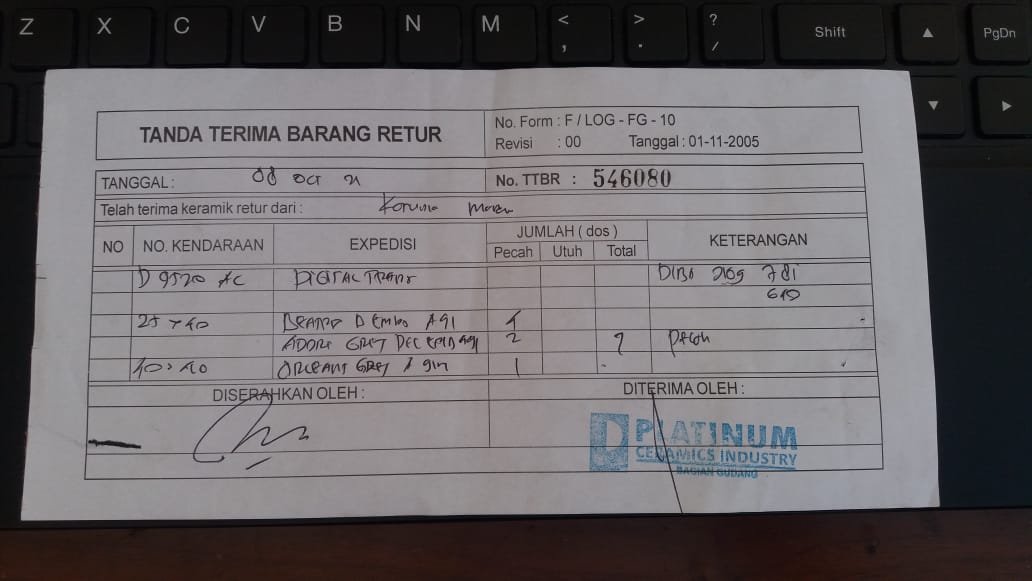 Z X C V B N M < , > . ? / Shift ▲ PgDn
▼ ▶
TANDA TERIMA BARANG RETUR
No. Form : F / LOG - FG - 10
Revisi : 00 Tanggal : 01-11-2005
TANGGAL : 08 OCT 21
No. TTBR : 546080
Telah terima keramik retur dari :
NO NO. KENDARAAN EXPEDISI JUMLAH ( dos ) KETERANGAN
Pecah Utuh Total
D 9520 AC DIGITAL TRANS
25 x 40
ADORE GREY DEC 2 Pecah
40 x 40 ORLEANS GREY A 1
DISERAHKAN OLEH : DITERIMA OLEH :
PLATINUM
CERAMICS INDUSTRY
BAGIAN GUDANG